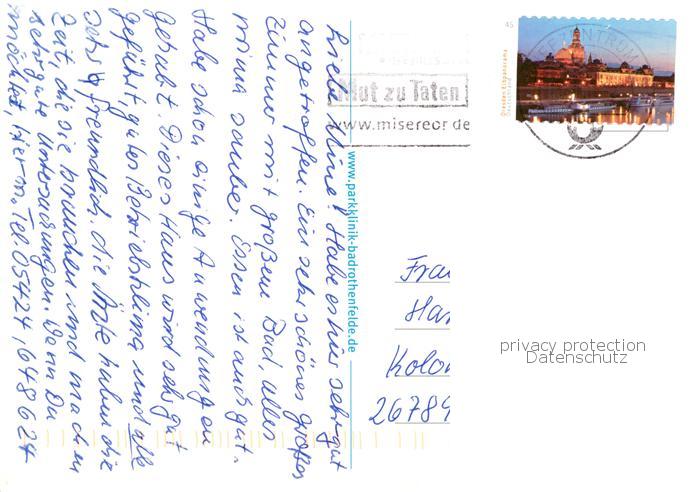 Liebe Mine! Habe es hier sehr gut
angetroffen. Ein sehr schönes großes
Zimmer mit großem Bad, alles
prima sauber. Essen ist auch gut.
Habe schon einige Anwendungen
gehabt. Dieses Haus wird sehr gut
geführt, gutes Betriebsklima und alle
sehr freundlich. Die Ärzte haben die
Zeit, die sie brauchen und machen
sehr gute Untersuchungen. Wenn Du
möchtest, Hier m. Tel. 05424, 648624
www.parkklinik-badrothenfelde.de
Mut zu Taten
www.misereor.de
45
Dresden Elbpanorama
Frau
Kolon
26789
privacy protection
Datenschutz